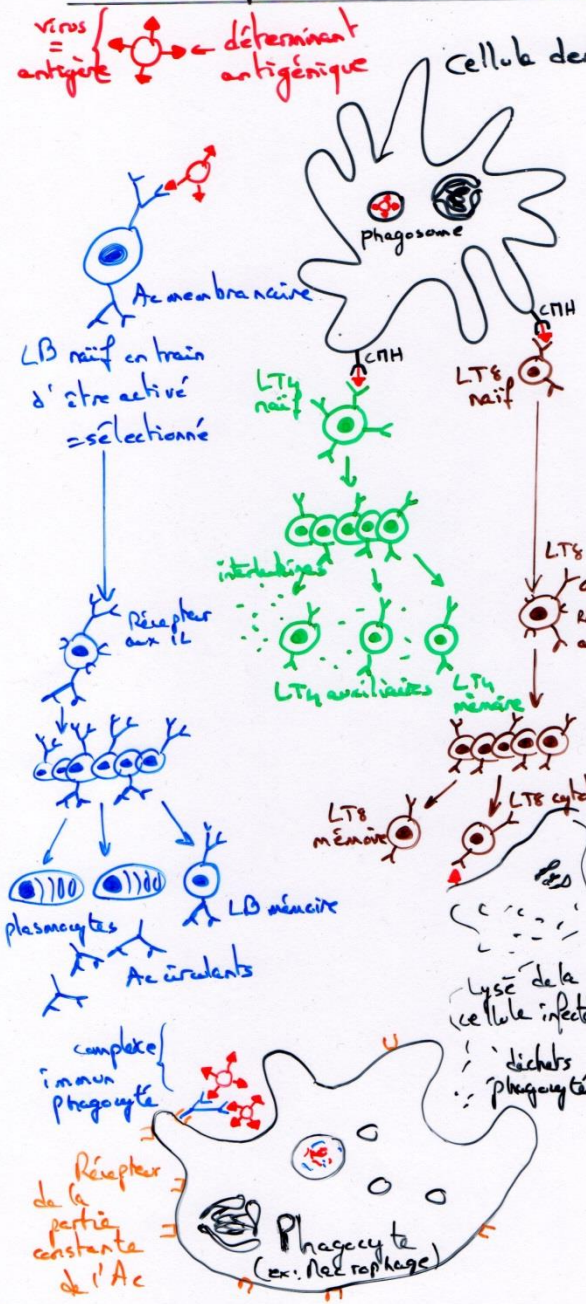 virus
=
antigène
déterminant
antigénique
Cellule de
phagosome
Ac membranaire
CMH
CMH
LB naïf en train
d'être activé
= sélectionné
LT4
naïf
LT8
naïf
interleukines
Récepteur
aux IL
LT8
LT4 auxiliaires
LT4
mémoire
LT8
mémoire
LT8 cyto
plasmocytes
LB mémoire
Ac circulants
Lyse de la
cellule infecté
déchets
phagocyté
complexe
immun
phagocyté
Récepteur
de la
partie
constante
de l'Ac
Phagocyte
(ex: Macrophage)